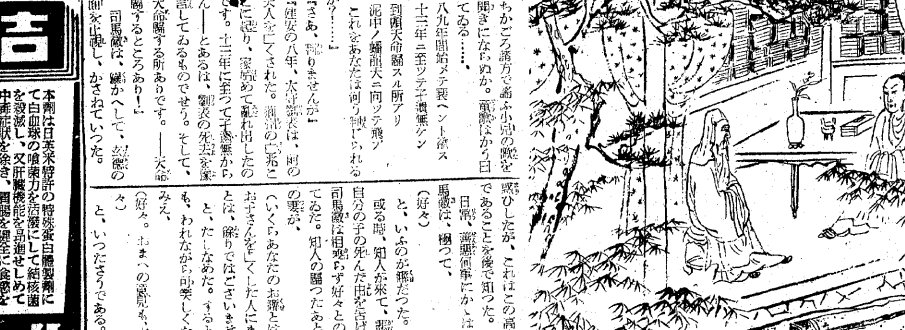 ちかごろ諸方で謠ふ小兒の歌を
聞きにならぬか。童歌はかう曰
てゐる……
八九年間始メテ衰ヘント欲ス
十三年ニ至ツテ孑遺無ケン
到頭天命歸スル所アリ
泥中ノ蟠龍天ニ向ツテ飛ブ
これをあなたは何う判じられる
『さあ、判りませんが』
『建安の八年、太守劉表は、前の
夫人を亡くされた。
に起り、家始めて亂れ出したの
です。十三年に至つて孑遺無から
ん――とあるは、劉表の死去を豫
言してゐるものでせう。そして、
天命歸する所ありです。――天命
歸するところあり！』
司馬徽は、繰かへして、玄德の
面を正視し、かさねていつた。
惑ひしたが、これはこの高
であることを後で知つた。
馬徽は、極つて、
(好々)
と、いふのが癖だつた。
或る時、知人が來て、
自分の子の死んだ由を告げ
司馬徽は相變らず好々との
てゐた。知人の歸つたあと
の妻が、
(いくらあなたのお癖とは
お子さんを亡くした人にま
とは、餘りではございませ
と、たしなめた。すると
も、われながら可笑しくな
みえ、
(好々。おまへの意見も
々)
と、いつたさうである。
本劑は日英米特許の特殊蛋白體製劑に
て白血球の喰菌力を活潑にして結核菌
を殺滅し、又肝臟機能を昂進せしめて
中毒症狀を除き、胃腸を健全に食慾を